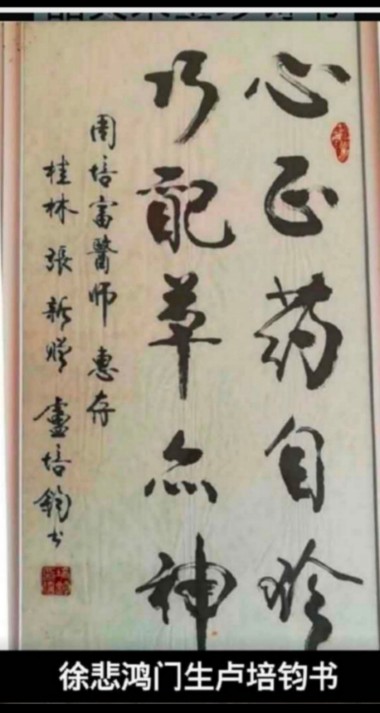 心正药自
巧配草亦神
周培富醫師 惠存
桂林 張新贈 盧培鈞书
徐悲鸿门生卢培钧书